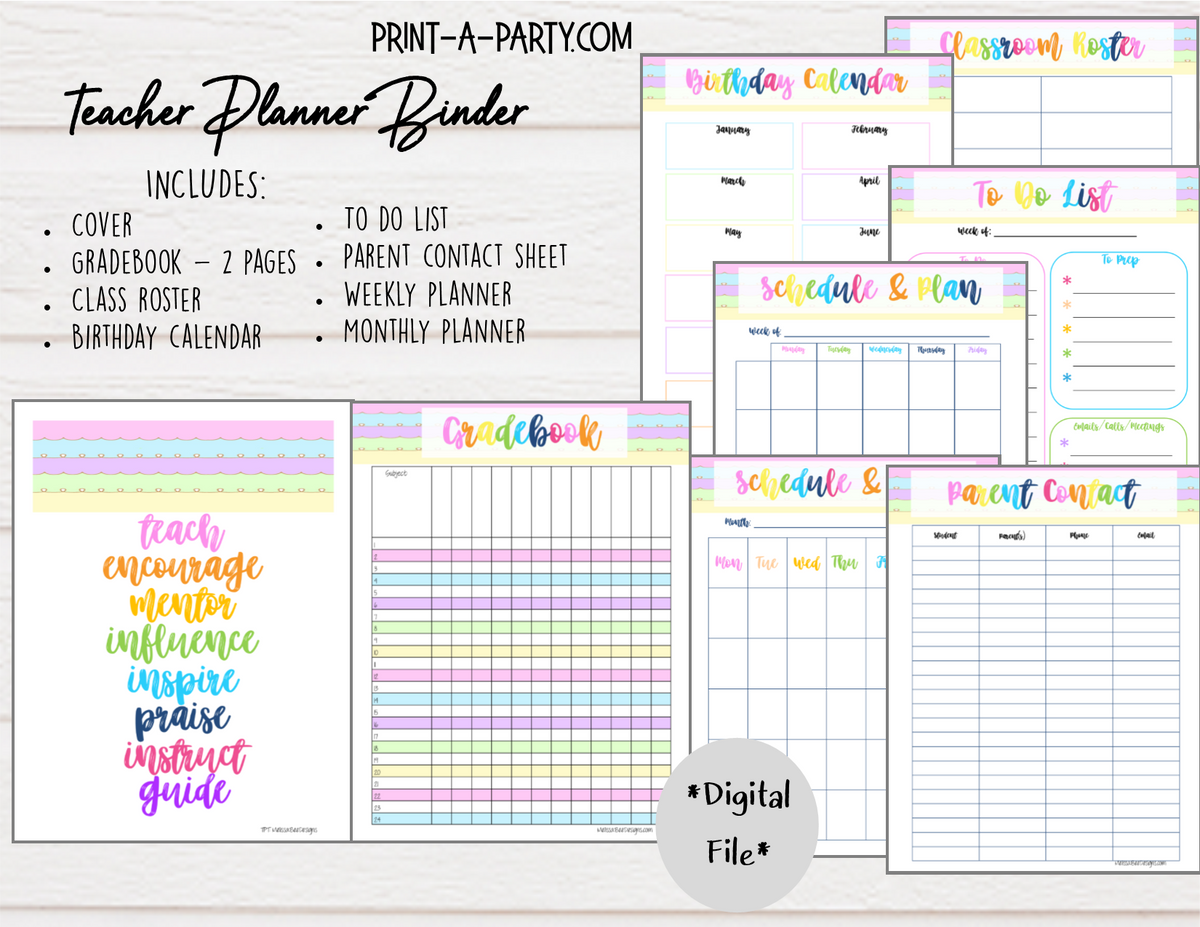 PRINT-A-PARTY.COM
Teacher Planner Binder
INCLUDES:
• COVER
• GRADEBOOK – 2 PAGES
• CLASS ROSTER
• BIRTHDAY CALENDAR
• TO DO LIST
• PARENT CONTACT SHEET
• WEEKLY PLANNER
• MONTHLY PLANNER
teach
encourage
mentor
influence
inspire
praise
instruct
guide
TPT MelissaBeeDesigns
Gradebook
Subject:
1
2
3
4
5
6
7
8
9
10
11
12
13
14
15
16
17
18
19
20
21
22
23
24
MelissaBeeDesigns.com
Birthday Calendar
January February
March April
May June
Classroom Roster
To Do List
Week of:
To Do To Prep
* 
*
*
*
*
Emails/Calls/Meetings
*
Schedule & Plan
Week of:
Monday Tuesday Wednesday Thursday Friday
Schedule &
Month:
Mon Tue Wed Thu
Parent Contact
Student Parent(s) Phone Email
MelissaBeeDesigns.com
*Digital
File*